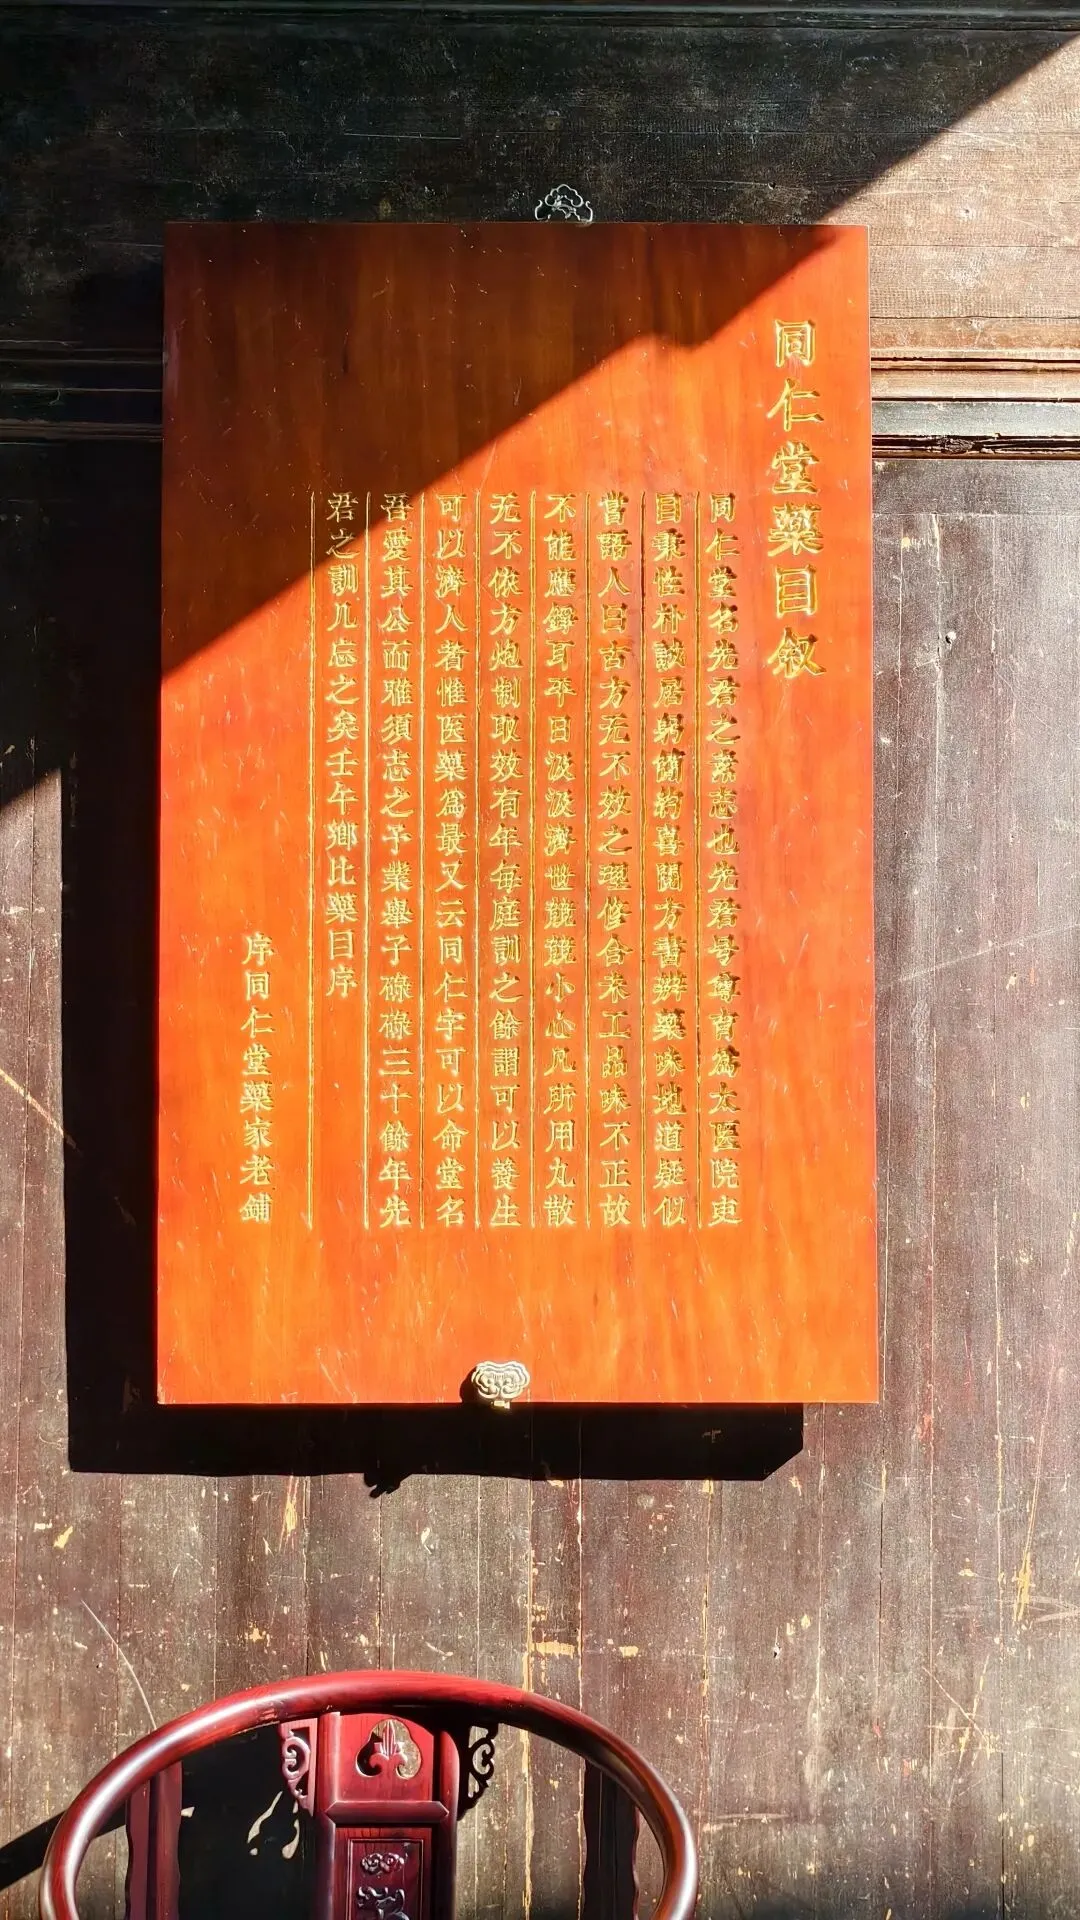 同仁堂藥目叙
同仁堂名先君之素志也先君号尊育為太医院吏
目秉性朴誠居躬簡約喜閱方書辨藥味地道疑似
當語人曰古方无不效之理修合未工品味不正故
不能應鐸耳平日汲汲濟世兢兢小心凡所用丸散
无不依方炮制取效有年每庭訓之餘謂可以養生
可以濟人者惟医藥為最又云同仁字可以命堂名
吾愛其公而雅須志之予業舉子碌碌三十餘年先
君之訓几忘之矣壬午鄉比藥目序
序同仁堂藥家老鋪